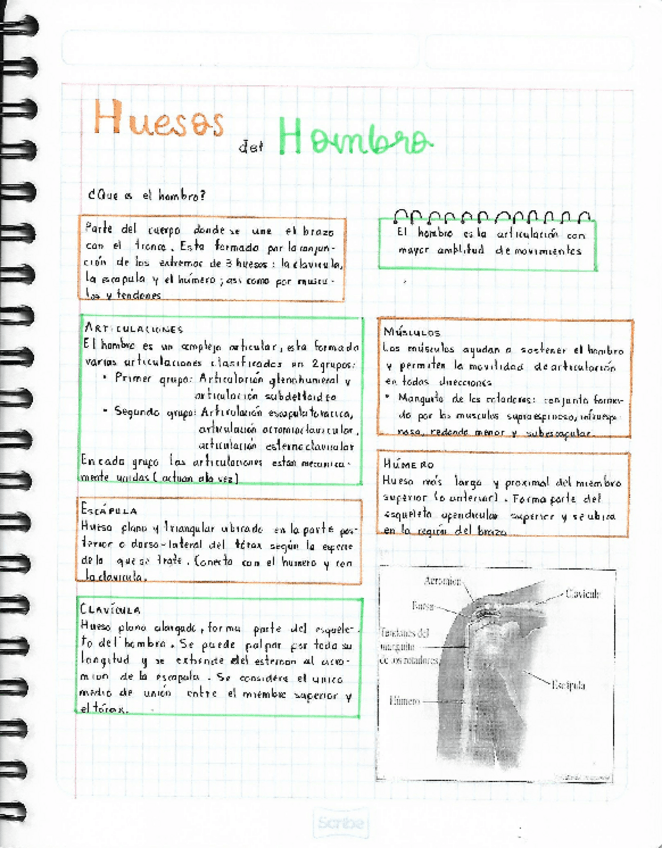 Huesos del Hombro
¿Que es el hombro?
Parte del cuerpo donde se une el brazo
con el tronco. Esta formado por la conjun-
ción de los extremos de 3 huesos: la clavicula,
la escapula y el húmero; asi como por muscu-
los y tendones
El hombro es la articulación con
mayor amplitud de movimientos
ARTICULACIONES
El hombro es un complejo articular, esta formado
varias articulaciones clasificadas en 2 grupos:
• Primer grupo: Articulación glenohumeral y
articulación subdeltoidea
• Segundo grupo: Articulación escapulotoracica,
articulación acromioclavicular,
articulación esternoclavicular
En cada grupo las articulaciones estan mecanica-
mente unidas (actuan a la vez)
MÚSCULOS
Los músculos ayudan a sostener el hombro
y permiten la movilidad de articulación
en todas direcciones
• Manguito de los rotadores: conjunto forma-
do por los musculos supraespinoso, infraespi-
noso, redondo menor y subescapular.
HÚMERO
Hueso más largo y proximal del miembro
superior (o anterior). Forma parte del
esqueleto apendicular superior y se ubica
en la región del brazo
ESCÁPULA
Hueso plano y triangular ubicado en la parte pos-
terior o dorso-lateral del tórax según la especie
de la que se trate. Conecta con el humero y con
la clavicula.
CLAVÍCULA
Hueso plano alargado, forma parte del esquele-
to del hombro. Se puede palpar por toda su
longitud y se extiende del esternon al acro-
mion de la escapula. Se considera el unico
medio de unión entre el miembro superior y
el tórax.
Acromion
Clavícula
Bursa
Tendones del
manguito
de los rotadores
Escápula
Húmero
Scribe